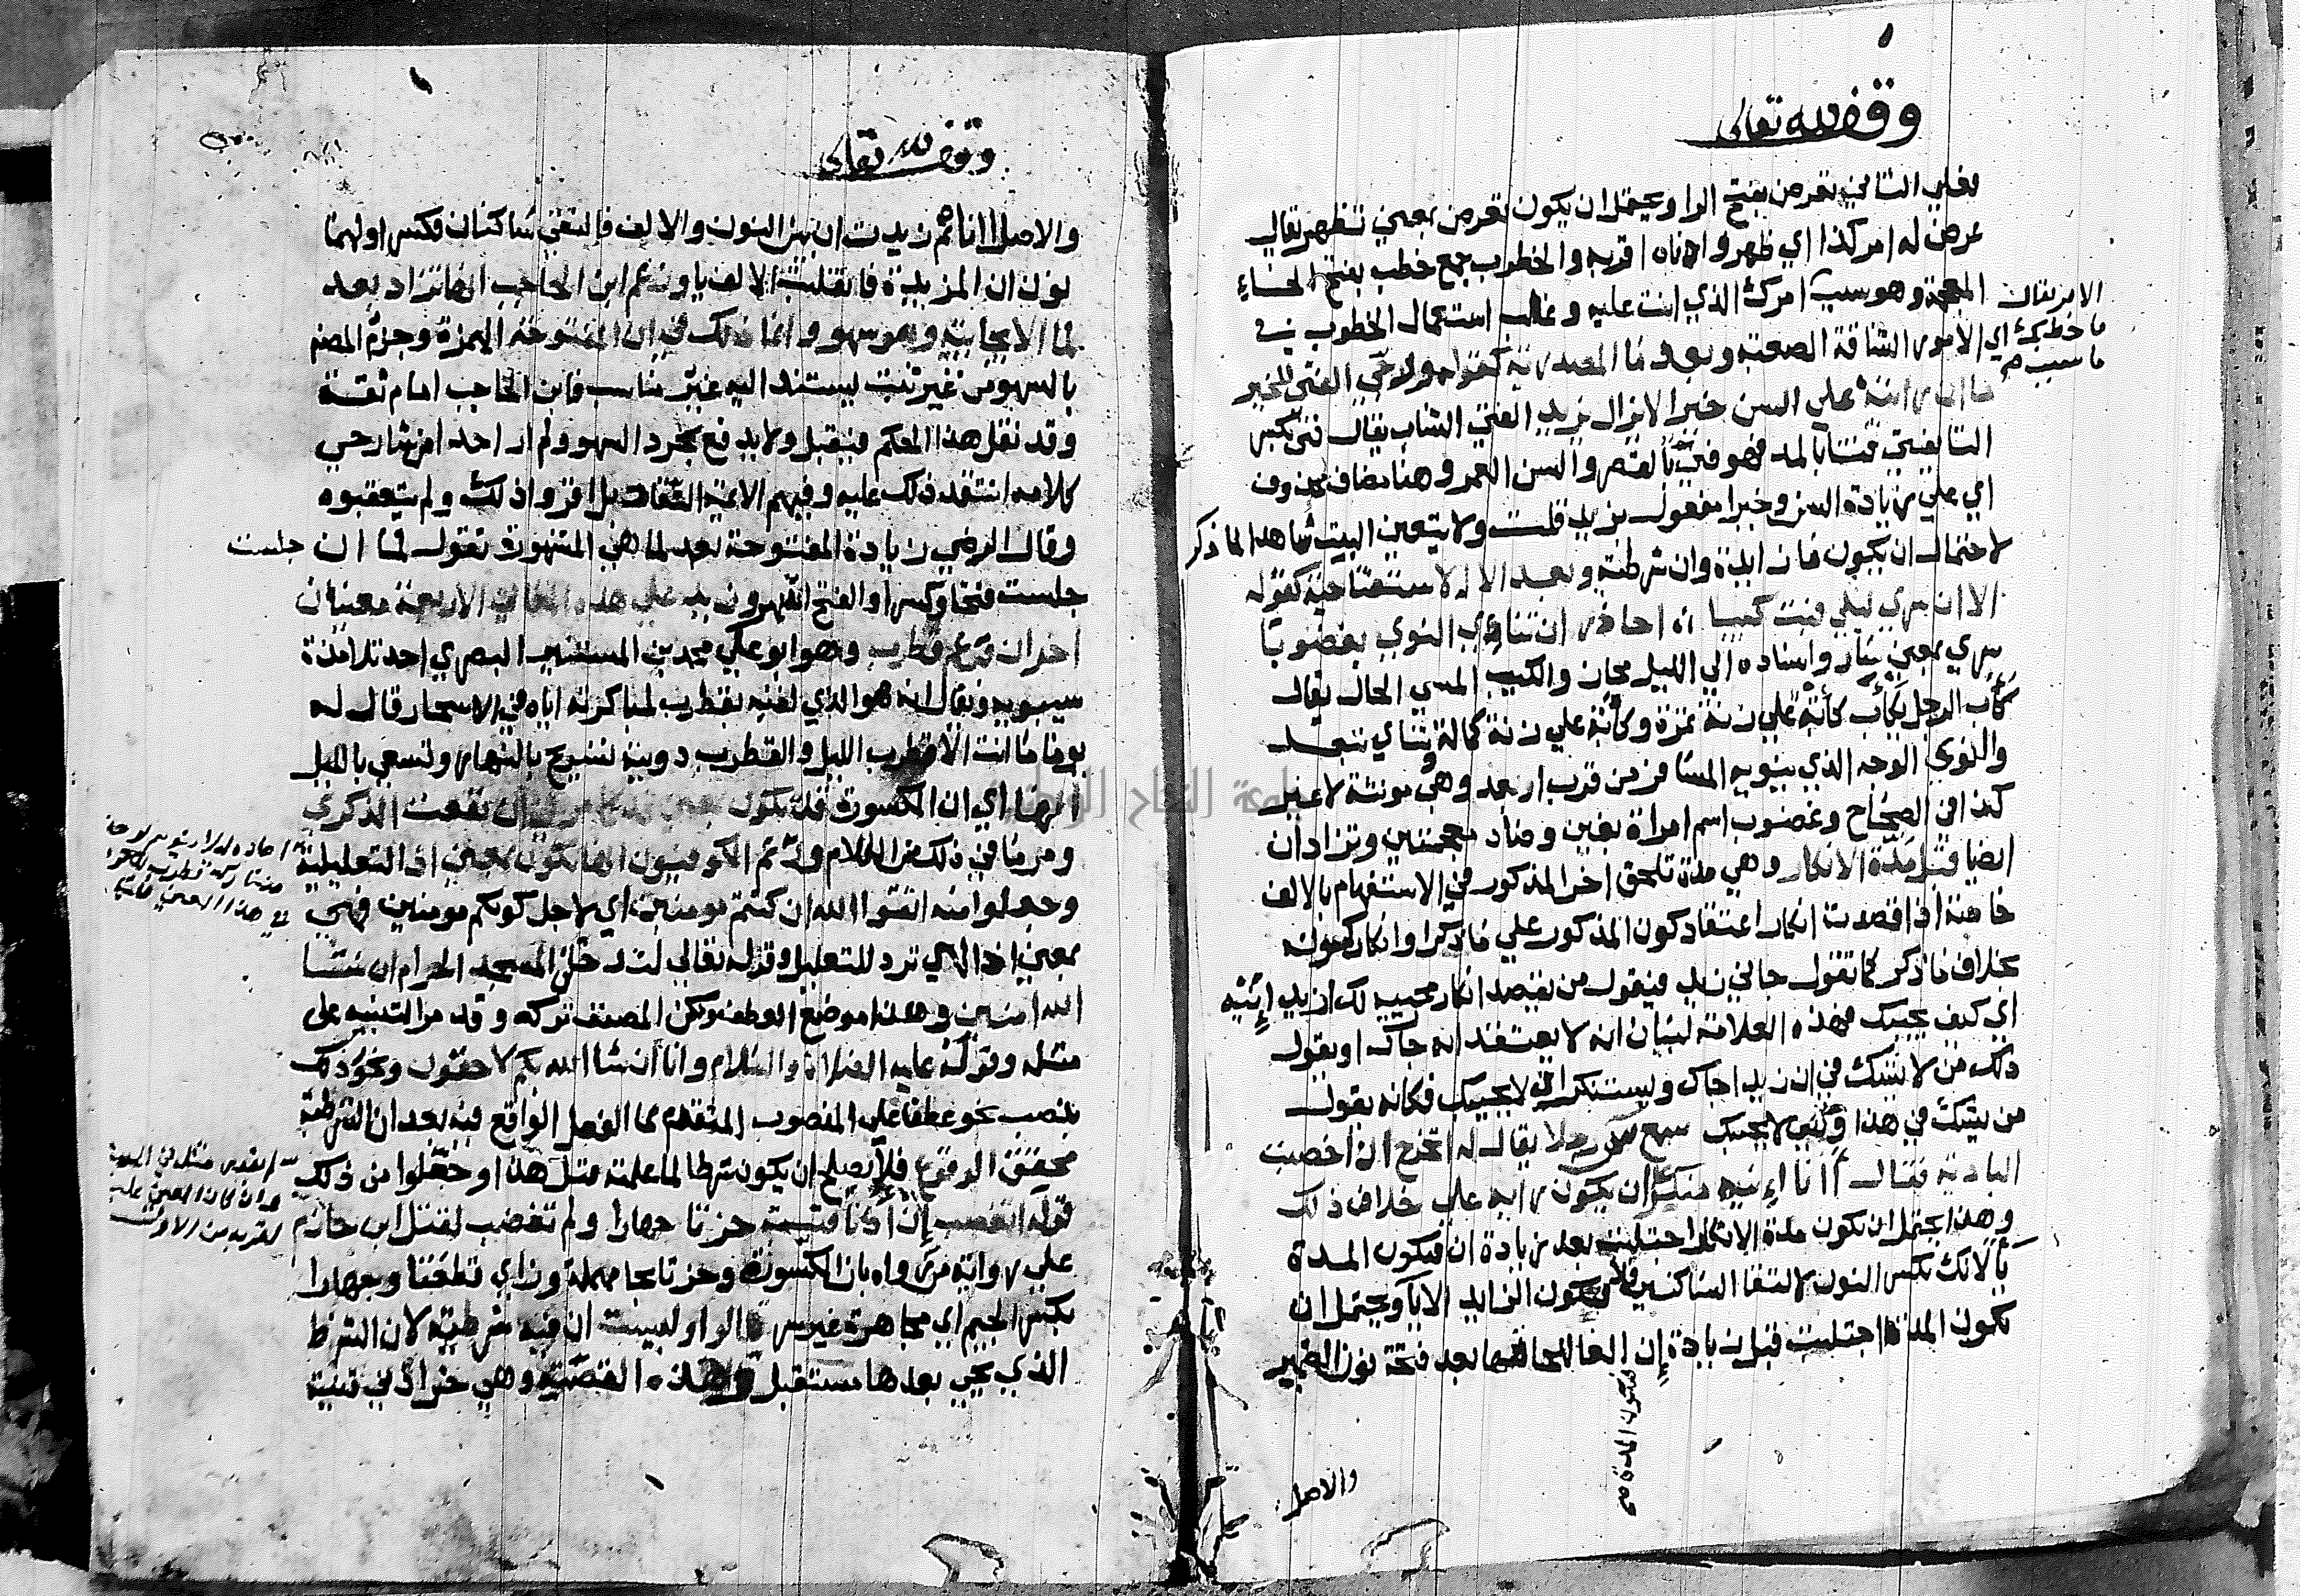 وقف لله تعالى
فعلي الثاني تعرض بفتح الرا ويحتمل ان يكون تعرض بمعني تظهر يقال
عرض له امر كذا اي ظهر و ادناه اقربه والخطوب جمع خطب بفتح الخاء
المعجمة وهو سبب امرك الذي انت عليه وغالب استعمال الخطوب في
الامر يقال
ما خطبك اي
ما سبب
الامور الشاقة الصعبة وبعد ما المصدرية كقوله ورج الفتى للخير
ما ان رايته علي السن خيرا لا يزال يزيد الفتي الشاب يقال فتي بكسر
التا يفتي فتا بالمد فهو فتي بالقصر والسن العمر وهنا مضاف محذوف
اي علي زيادة السن وخيرا مفعول يزيد قلت ولا يتعين البيت شاهدا لما ذكر
لاحتمال ان يكون ما زايدة وان شرطية وبعد الا الاستفتاحية كقوله
الا ان سري ليلي فبت كئيبا احاذر ان تناي النوي بغضوبا
سري بمعني سار واسناده الي الليل مجاز والكئيب المسي الحال يقال
كاب الرجل يكاب كابة علي زنة تمرة وكابة علي زنة كمالة وتناي تبعد
والنوي الوجه الذي ينويه المسافر من قرب او بعد وهي مونثة لا غير
كذا في الصحاح وغضوب اسم امراة بغين وضاد معجمتين وتزاد ان
ايضا قبل مدة الانكار وهي مدة تلحق اخر المذكور في الاستفهام بالالف
خاصة اذا قصدت انكار اعتقاد كون المذكور علي ما ذكر او انكار كونه
بخلاف ما ذكر كما تقول جاني زيد فيقول من يقصد انكار مجييه لك ازيد انيه
اي كيف يجيبك فهذه العلامة لبيان انه لا يعتقد انه جاك او يقول
ذلك من لا يشك في ان زيدا جاك ويستنكر ان لا يجيبك فكانه يقول
من يشك في هذا وكيف لا يجيبك سمع سيبويه رجلا يقال له اتخرج ان اخصبت
البادية فقال اانا انيه منكرا ان يكون رايه علي خلاف ذلك
وهذا يحتمل ان تكون مدة الانكار اجتلبت بعد زيادة ان فتكون المدة
يا لانك تكسر النون لالتقا الساكنين فلا تكون الزايد الا يا ويحتمل ان
تكون المدة اجتلبت قبل زيادة ان الفا لمجانستها بعد فتحة نون الضمير
فتكون المدة
والاصل
وقف لله تعالى
والاصل انا ثم زيدت ان بين النون والالف فالتقي ساكنان فكسر اولهما
نون ان المزيدة فانقلبت الالف يا وزعم ابن الحاجب انها تزاد بعد
لما الايجابية وهو سهو وانما ذلك في ان المفتوحة الهمزة وجزم المصنف
بالسهو من غير ثبت يستند اليه غير مناسب فابن الحاجب امام ثقة
وقد نقل هذا الحكم فيقبل ولا يدفع بمجرد السهو ولم ار احدا من شارحي
كلامه انتقد ذلك عليه وفيهم الائمة الثقات بل اقروا ذلك ولم يتعقبوه
وقال الرضي زيادة المفتوحة بعد لما هي المشهورة تقول لما ان جلست
جلست فتحا وكسرا والفتح اشهر وزيد علي هذه المعاني الاربعة معنيان
اخران فزعم قطرب وهو ابو علي محمد بن المستنير البصري احد تلامذة
سيبويه ويقال انه هو الذي لقبه بقطرب لمباكرته اياه في الاسحار قال له
يوما ما انت الا قطرب الليل والقطرب دويبة تستريح بالنهار وتسعي بالليل
انها اي ان المكسورة قد تكون بمعني قد كما مر في ان نفعت الذكري
ومر ما في ذلك من الكلام وزعم الكوفيون انها تكون بمعني اذ التعليلية
وجعلوا منه اتقوا الله ان كنتم مومنين اي لاجل كونكم مومنين فهي
بمعني اذ التي ترد للتعليل وقوله تعالي لتدخلن المسجد الحرام ان شا
الله امنين وهذا موضع العطف ولكن المصنف تركه وقد مر التنبيه علي
مثله وقوله عليه الصلاة والسلام وانا ان شا الله بكم لاحقون ونحو ذلك
بنصب نحو عطفا علي المنصوب المتقدم مما الفعل الواقع فيه بعد ان الشرطية
محقق الوقوع فلا يصلح ان يكون شرطا لما علمت مثل هذا وجعلوا من ذلك
قوله اتغضب ان اذنا قتيبة حزتا جهارا ولم تغضب لقتل ابن خازم
علي رواية من رواه بان المكسورة وحزتا بحا مهملة وزاي قطعتا وجهارا
بكسر الجيم اي مجاهرة غير سر قالوا وليست ان فيه شرطية لان الشرط
الذي يجي بعدها مستقبل وهذه القصة وهي حز اذني قتيبة